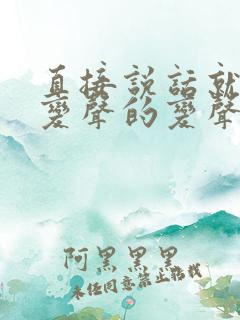 直接説話就
變聲的變聲
阿黑黑黑
未任同意禁止轉載